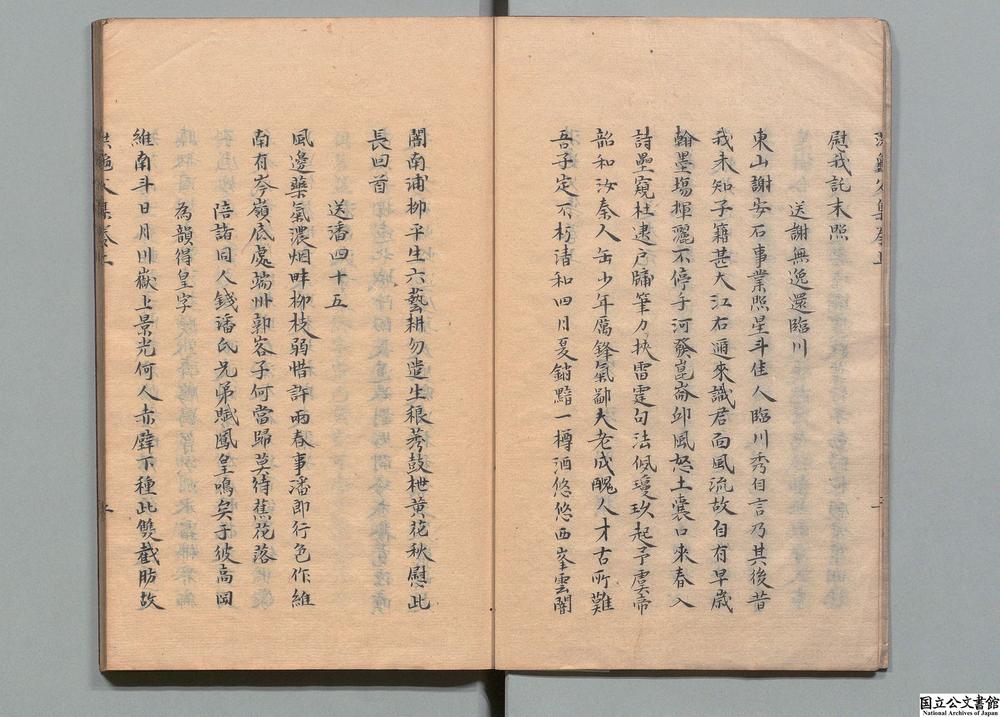 慰我託末照
送謝無逸還臨川
東山謝安石事業照星斗佳人臨川秀自言乃其後昔
我未知子籍甚大江右邇來識君面風流故自有早歲
翰墨塲揮灑不停手河發崑崙卭風怒土囊口來春入
詩壘窺杜逮戸牖筆力挾雷霆句法佩瓊玖起予虞帝
韶和汝秦人缶少年厲鋒氣鄙夫老成醜人才古所難
吾子定不朽清和四月夏銷黯一樽酒悠悠西峯雲闇
闇南浦柳平生六藝耕勿遣生稂莠鼓枻黄花秋慰此
長回首
送潘四十五
風邊藥氣濃烟畔柳枝弱惜許兩春事潘郎行色作維
南有岑嶺底處端州郭客子何當歸莫待蕉花落
陪諸同人餞潘氏兄弟賦鳳皇鳴矣于彼高岡
為韻得皇字
維南斗日月川嶽上景光何人赤壁下種此雙截肪故